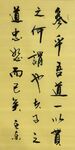 參乎吾道一以貫
之何謂也夫子之
道忠恕而已矣